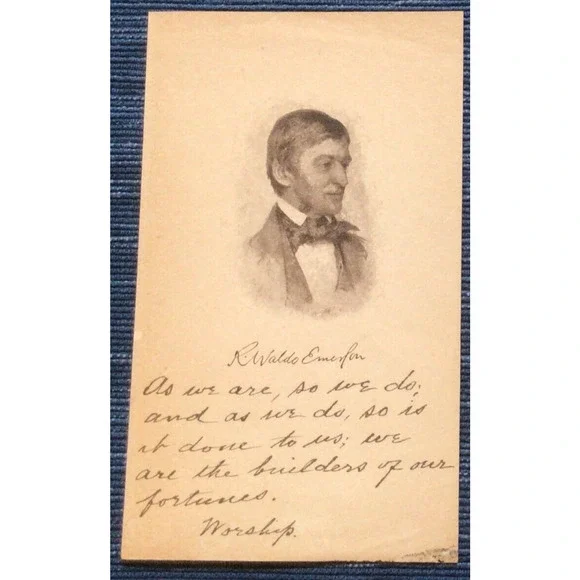 R. Waldo Emerson
As we are, so we do;
and as we do, so is
it done to us; we
are the builders of our
fortunes.
Worship.